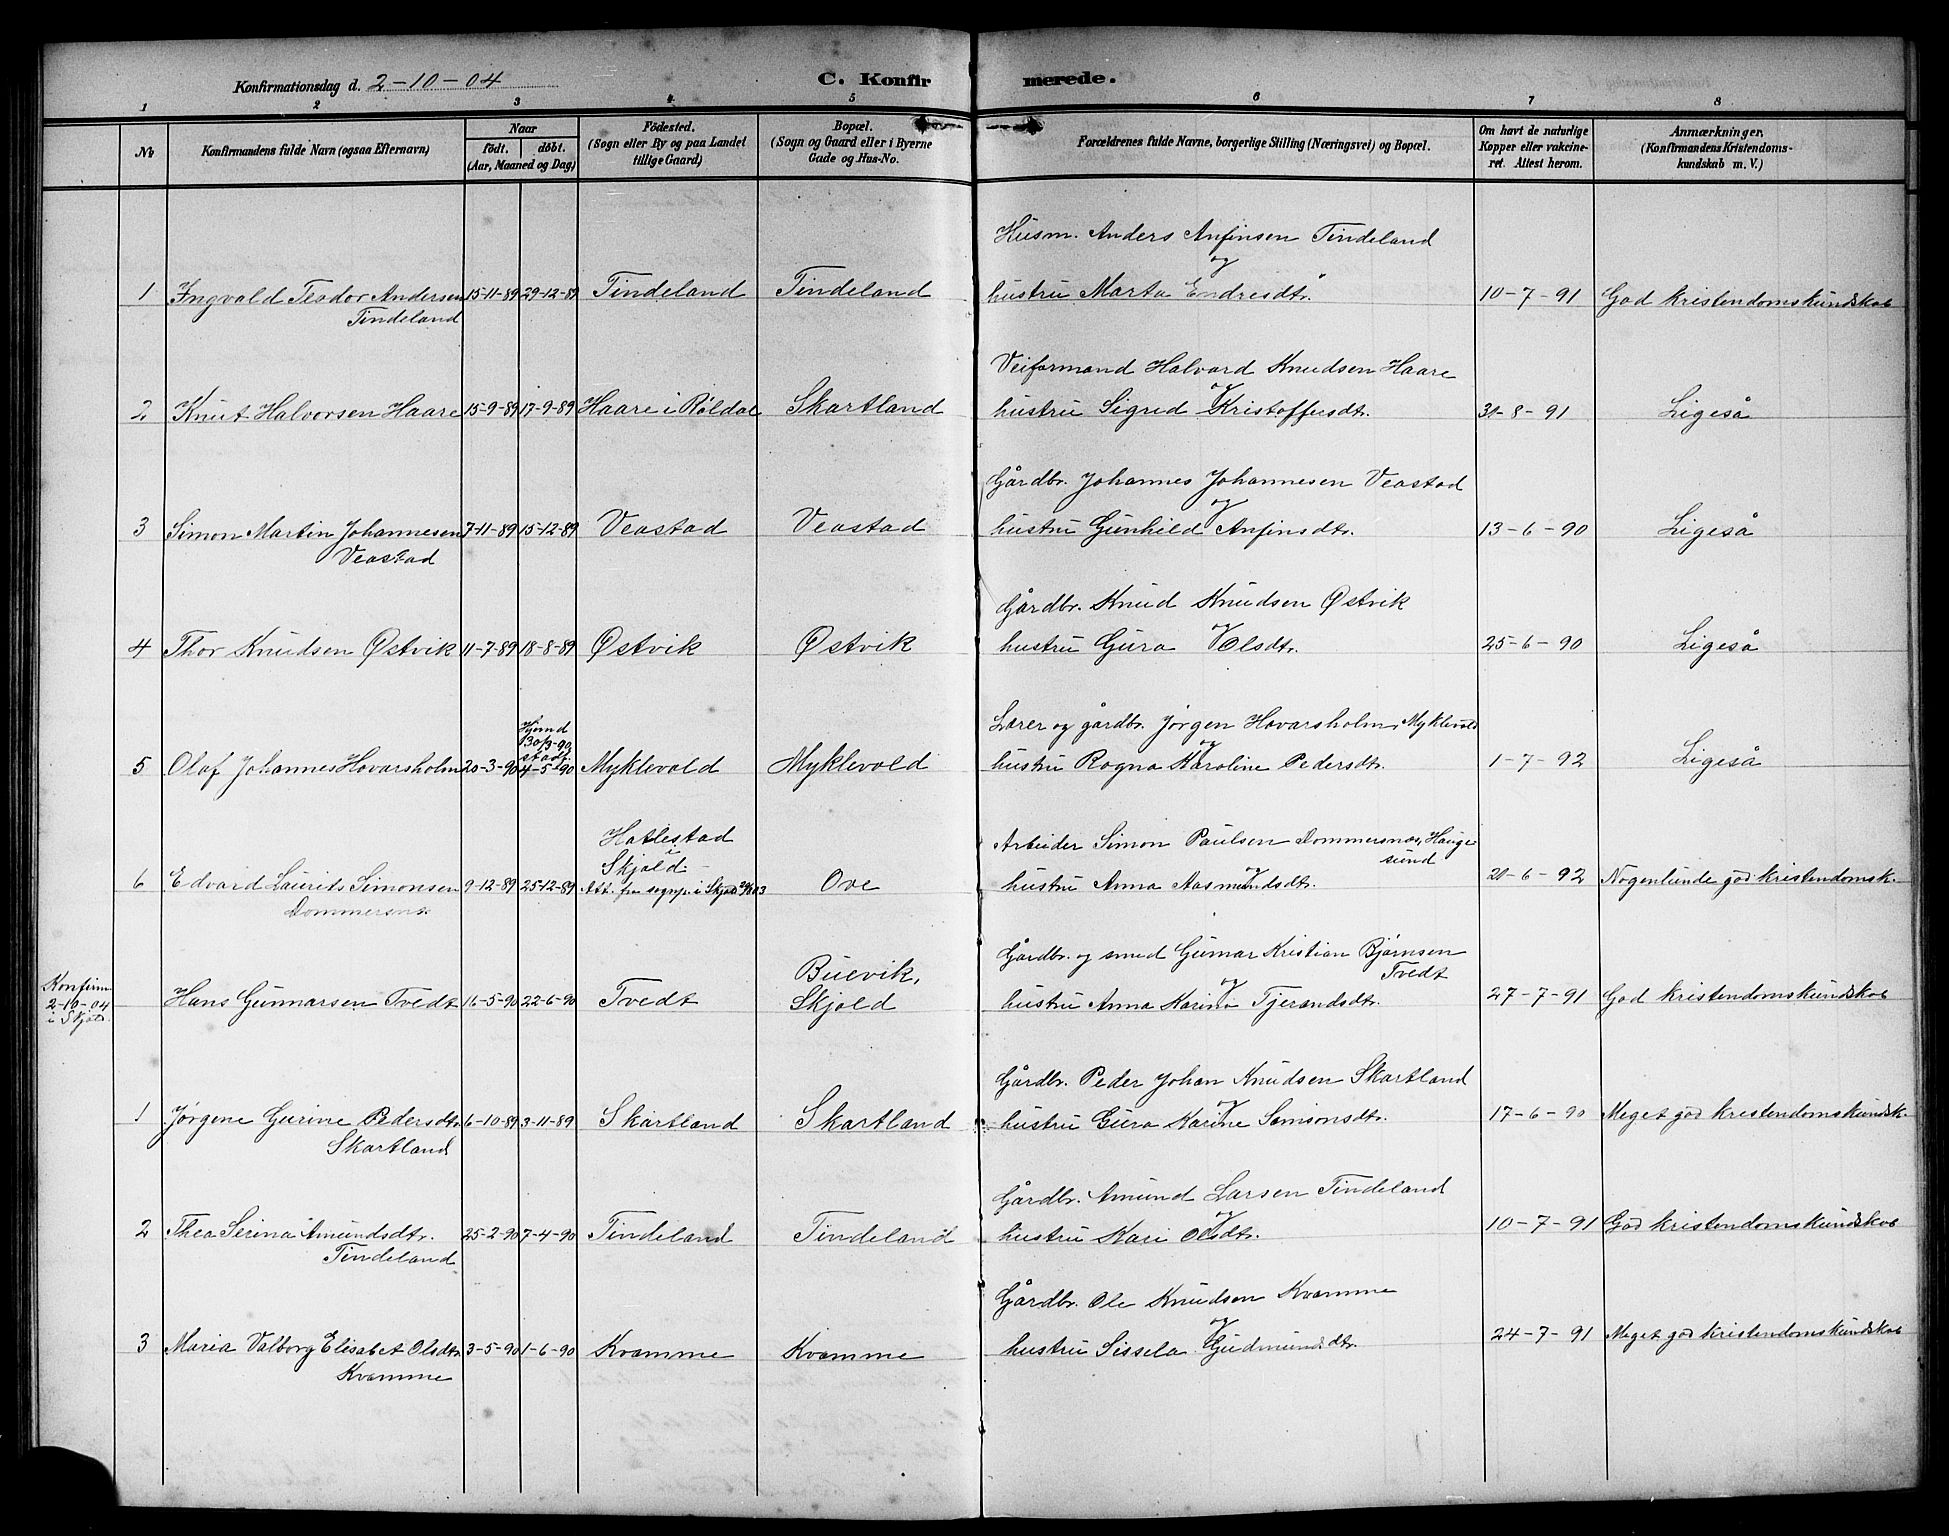 Konfirmationsdag d. 2-10-04
C. Konfirmerede.
1 2 3 4 5 6 7 8
No
Konfirmandens fulde Navn (ogsaa Efternavn)
Naar
født. døbt.
(Aar, Maaned og Dag)
Fødested.
(Sogn eller By og paa Landet
tillige Gaard)
Bopæl.
(Sogn og Gaard eller i Byerne
Gade og Hus-No.
Forældrenes fulde Navne, borgerlige Stilling (Næringsvei) og Bopæl.
Om havt de naturlige
Kopper eller vakcine-
ret. Attest herom.
Anmærkninger.
(Konfirmandens Kristendoms-
kundskab m. V.)
Husm. Anders Anfinsen Tindeland
og
1 Ingvald Teodor Andersen 15-11-89 29-12-89 Tindeland Tindeland hustru Marta Endresdtr. 10-7-91 God kristendomskundskab
Tindeland
Veiformand Halvard Knudsen Haare
og
2 Knut Halvorsen Haare 15-9-89 17-9-89 Haare i Røldal Skartland hustru Sigrid Kristoffersdtr. 31-8-91 Ligeså
Gårdbr. Johannes Johannesen Veastad
og
3 Simon Martin Johannesen 7-11-89 15-12-89 Veastad Veastad hustru Gunhild Anfinsdtr. 13-6-90 Ligeså
Veastad
Gårdbr. Knud Knudsen Østvik
og
4 Thor Knudsen Østvik 11-7-89 18-8-89 Østvik Østvik hustru Gura Olsdtr. 25-6-90 Ligeså
Hjemd
30/3-90,
stadf.
Lærer og gårdbr. Jørgen Hovarsholm, Myklevold
og
5 Olaf Johannes Hovarsholm 20-3-90 4-5-90 Myklevold Myklevold hustru Ragna Karoline Pedersdtr. 1-7-92 Ligeså
Hatlestad
i
Skjold.-
Arbeider Simon Paulsen Dommersnæs, Hauge-
sund
og
6 Edvard Laurits Simonsen 9-12-89 25-12-89 Att. fra sognep. i Skjold Ove hustru Anna Aasmundsdtr. 21-6-92 Nogenlunde god kristendomsk.
Dommersnæs
Gårdbr. og smed Gunnar Kristian Bjørnsen
Tvedt
og
Konfirm.
2-10-04
i Skjold.
Hans Gunnarsen Tvedt 16-5-90 22-6-90 Tvedt Buevik,
Skjold hustru Anna Karina Tjerandsdtr. 27-7-91 God kristendomskundskab
Gårdbr. Peder Johan Knudsen Skartland
og
1 Jørgene Gurine Pedersdtr. 6-10-89 3-11-89 Skartland Skartland hustru Gura Karine Samsonsdtr. 17-6-90 Meget god kristendomskundsk.
Skartland
Gårdbr. Amund Larsen Tindeland
og
2 Thea Serina Amundsdtr. 25-2-90 7-4-90 Tindeland Tindeland hustru Kari Olsdtr. 10-7-91 God kristendomskundskab
Tindeland
Gårdbr. Ole Knudsen Kvamme
og
3 Maria Valborg Elisabet Olsdtr. 3-5-90 1-6-90 Kvamme Kvamme hustru Sissela Gudmundsdtr. 24-7-91 Meget god kristendomskundskab
Kvamme